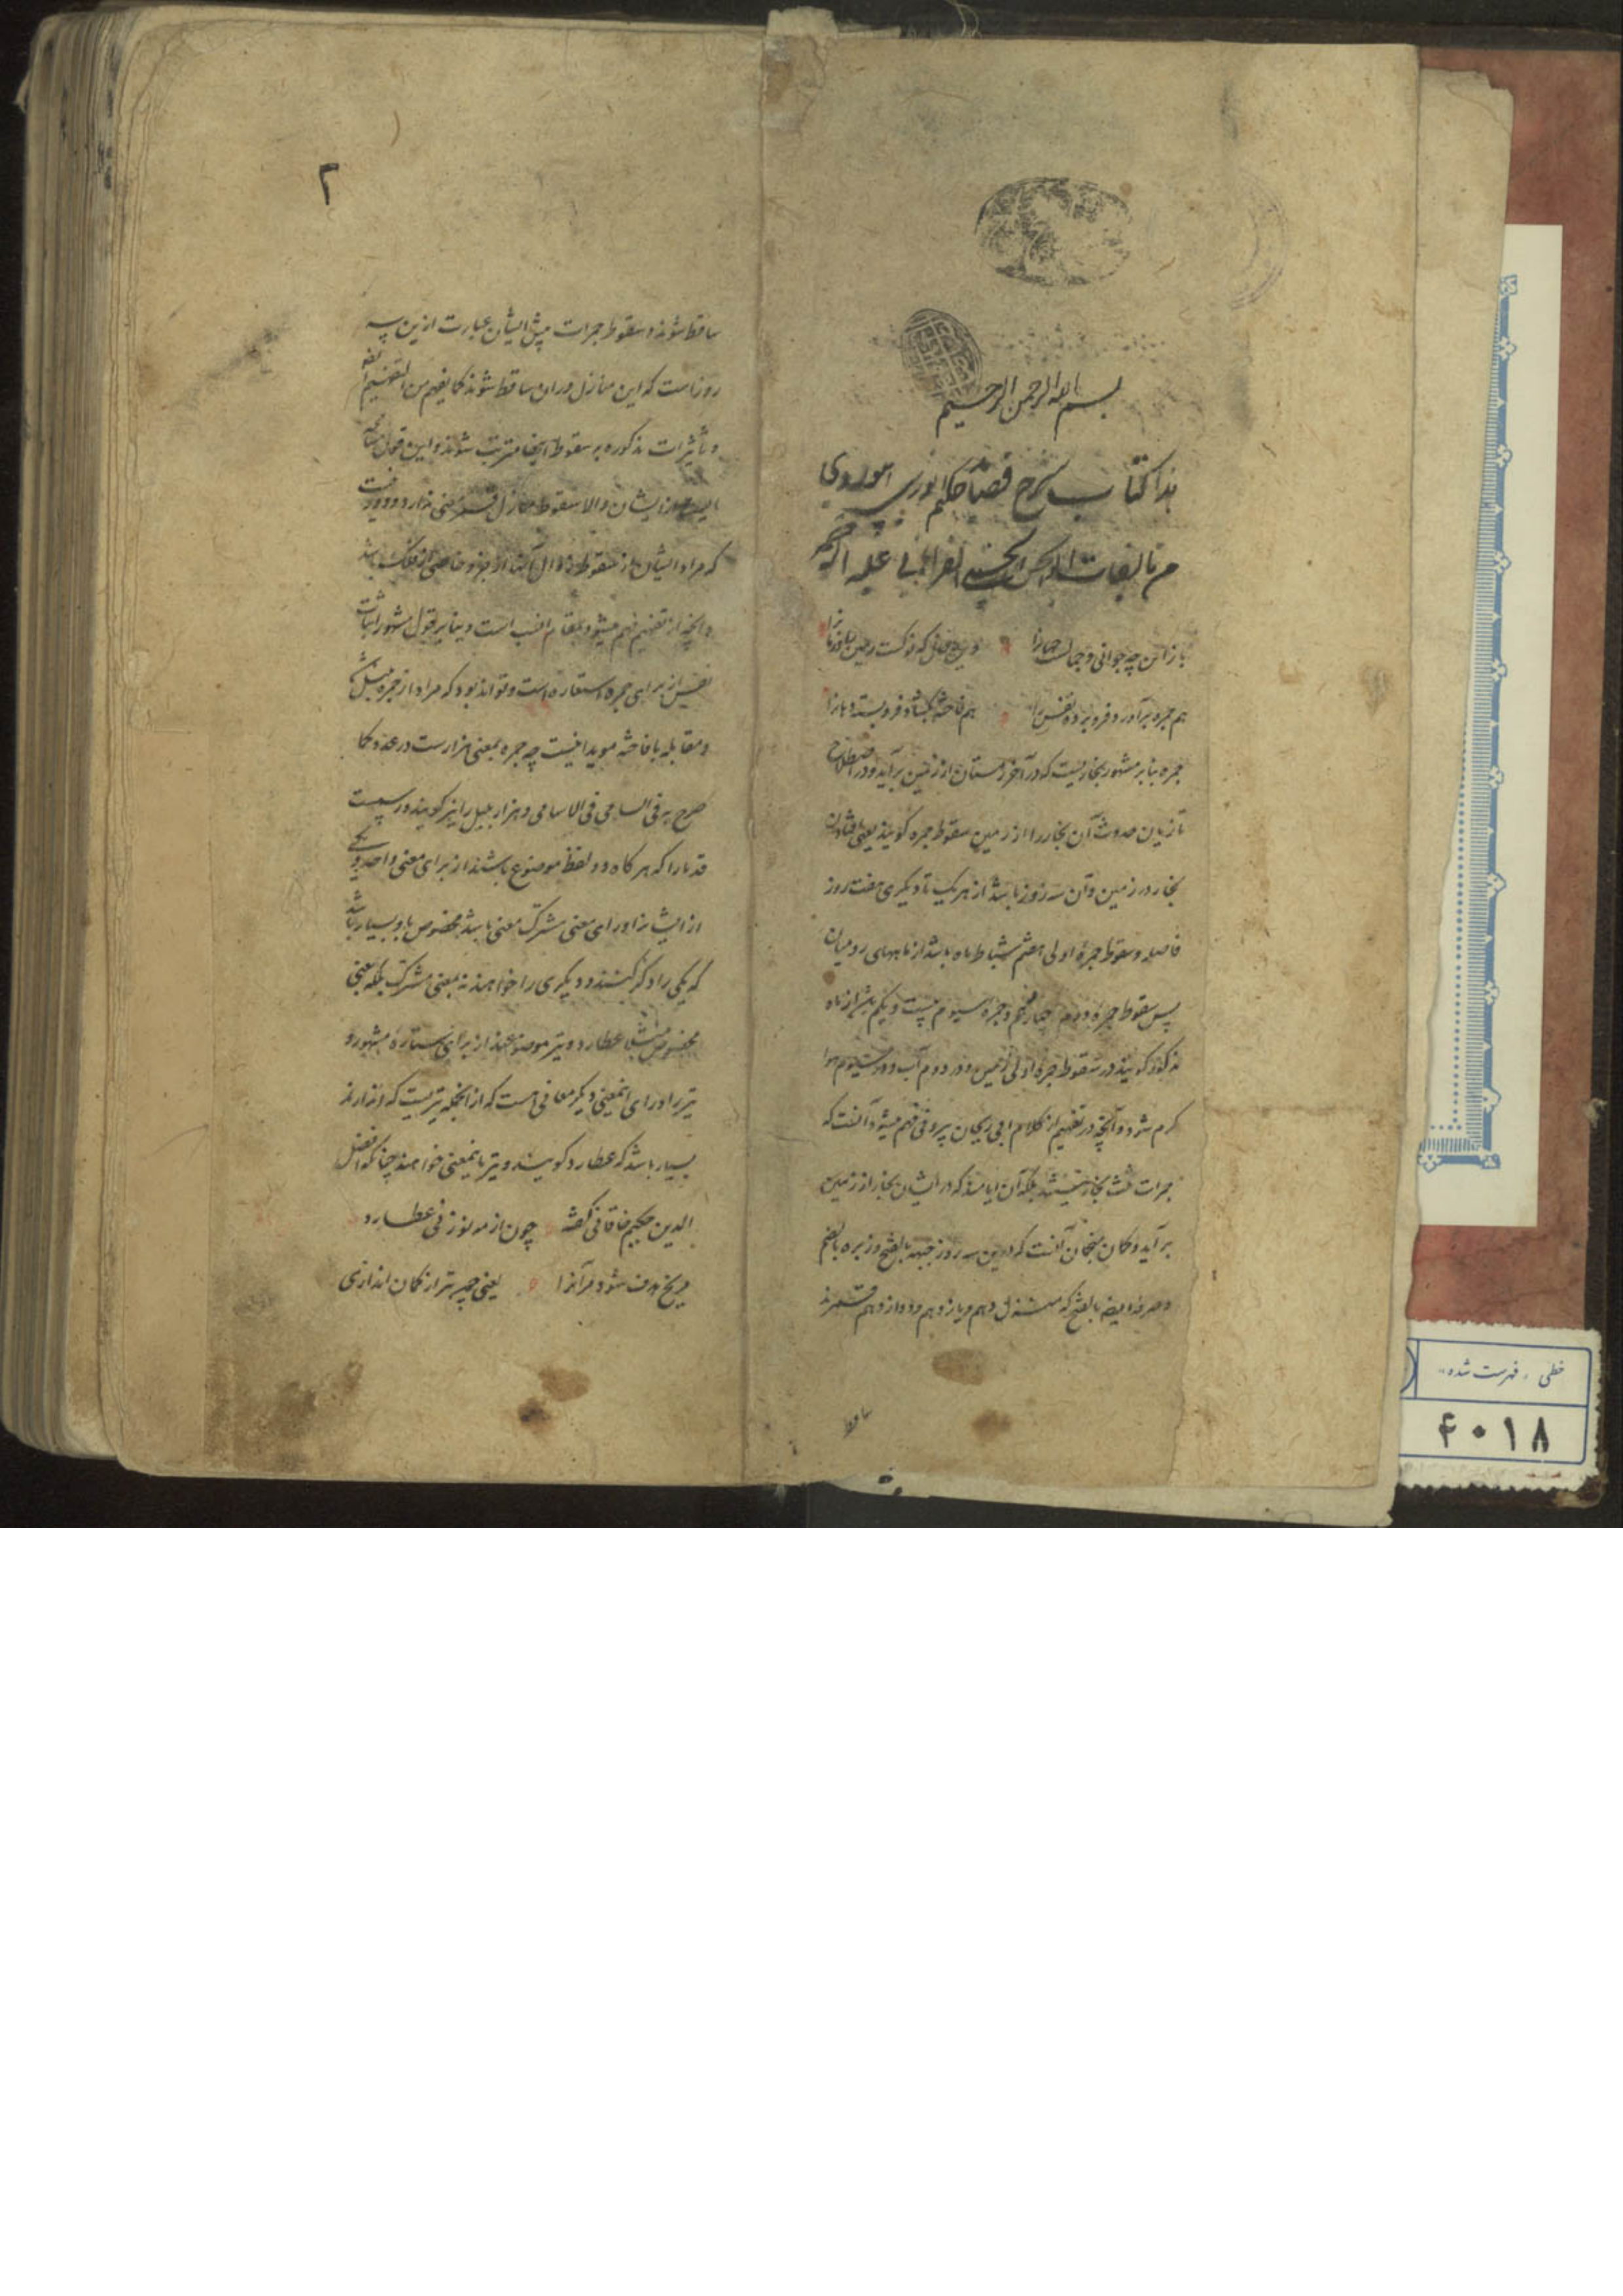 بسم الله الرحمن الرحیم
هذا کتاب شرح قصاید حکیم انوری ابیوردی
من تالیفات ابوالحسن الحسینی الفراهانی علیه الرحمه
باز این چه جوانی و جمالست جهانرا
هم جمره برآورد فرو برده نفس را هم فاخته بگشاد فرو بسته دهانرا
جمره بنابر مشهور بخاریست که در آخر زمستان از زمین برآید و در اصطلاح
تازیان حدوث آن بخار را از زمین سقوط جمره گویند یعنی افتادن
بخار در زمین و آن سه روز باشد از هر یک تا دیگری هفت روز
فاصله و سقوط جمرهٔ اولی هفتم شباط ماه باشد از ماههای رومیان
پس سقوط جمرهٔ دوم چهاردهم و جمره سیوم بیست و یکم باشد از ماه
مذکور گویند در سقوط جمرهٔ اولی زمین و در دوم آب و در سیوم هوا
گرم شود و آنچه در تفهیم از کلام ابی ریحان بیرونی فهم میشود آنست که
جمرات ثلث بخار نیستند بلکه آن ایامند که در ایشان بخار از زمین
برآید و گمان منجمان آنست که درین سه روز جبهه بالفتح و زبره بالضم
و صرفه ایضا بالفتح که منزل دهم و یازدهم و دوازدهم قمرند
ساقط
۲
ساقط شوند و سقوط جمرات پیش ایشان عبارت ازین سه
روزاست که این منازل دران ساقط شوند کما یفهم من التفهیم
و تأثیرات مذکوره بر سقوط اینها مترتب شوند و این
ایشان والا سقوط منازل قمر معنی ندارد و دور نیست
که مراد ایشان از سقوط زوال آنها از جزو خاصی از فلک باشد
و آنچه از تفهیم فهم میشود بمقام انسب است و بنابر قول مشهور اثبات
نفس از برای جمره استعاره است و تواند بود که مراد از جمره بلبل باشد
و مقابله با فاخته مؤید اینست چه جمره بمعنی هزارست در عدد کما
صرح به فی السامی فی الاسامی و هزار بلبل را نیز گویند و رسمیست
قدما را که هر گاه دو لفظ موضوع باشند از برای معنی واحد و یکی
از ایشانرا ورای معنی مشترک معنی باشد مخصوص باو بسیار باشد
که یکی را ذکر کنند و دیگری را خواهند نه بمعنی مشترک بلکه بمعنی
مخصوص مثلا عطارد و تیر موضوعند از برای ستاره مشهور و
تیر را ورای اینمعنی دیگر معانی هست که از انجمله تیریست که اندازند
بسیار باشد که عطارد گویند و تیر باینمعنی خواهند چنانکه افضل
الدین حکیم خاقانی گفته چون از مه نو زنی عطارد
مریخ هدف شود مرآنرا یعنی چو تیر از کمان اندازی
خطی . فهرست شده
۴۰۱۸